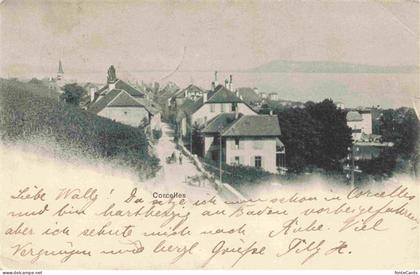 Corcelles
Liebe Wally! Da reise ich schon in Corcelles
und bin hartherzig an Baden vorbeigefahren
aber ich sehnte mich nach Ruhe. Viel
Vergnügen und herzl. Grüße Tilly H.
© www.fonteCards.com